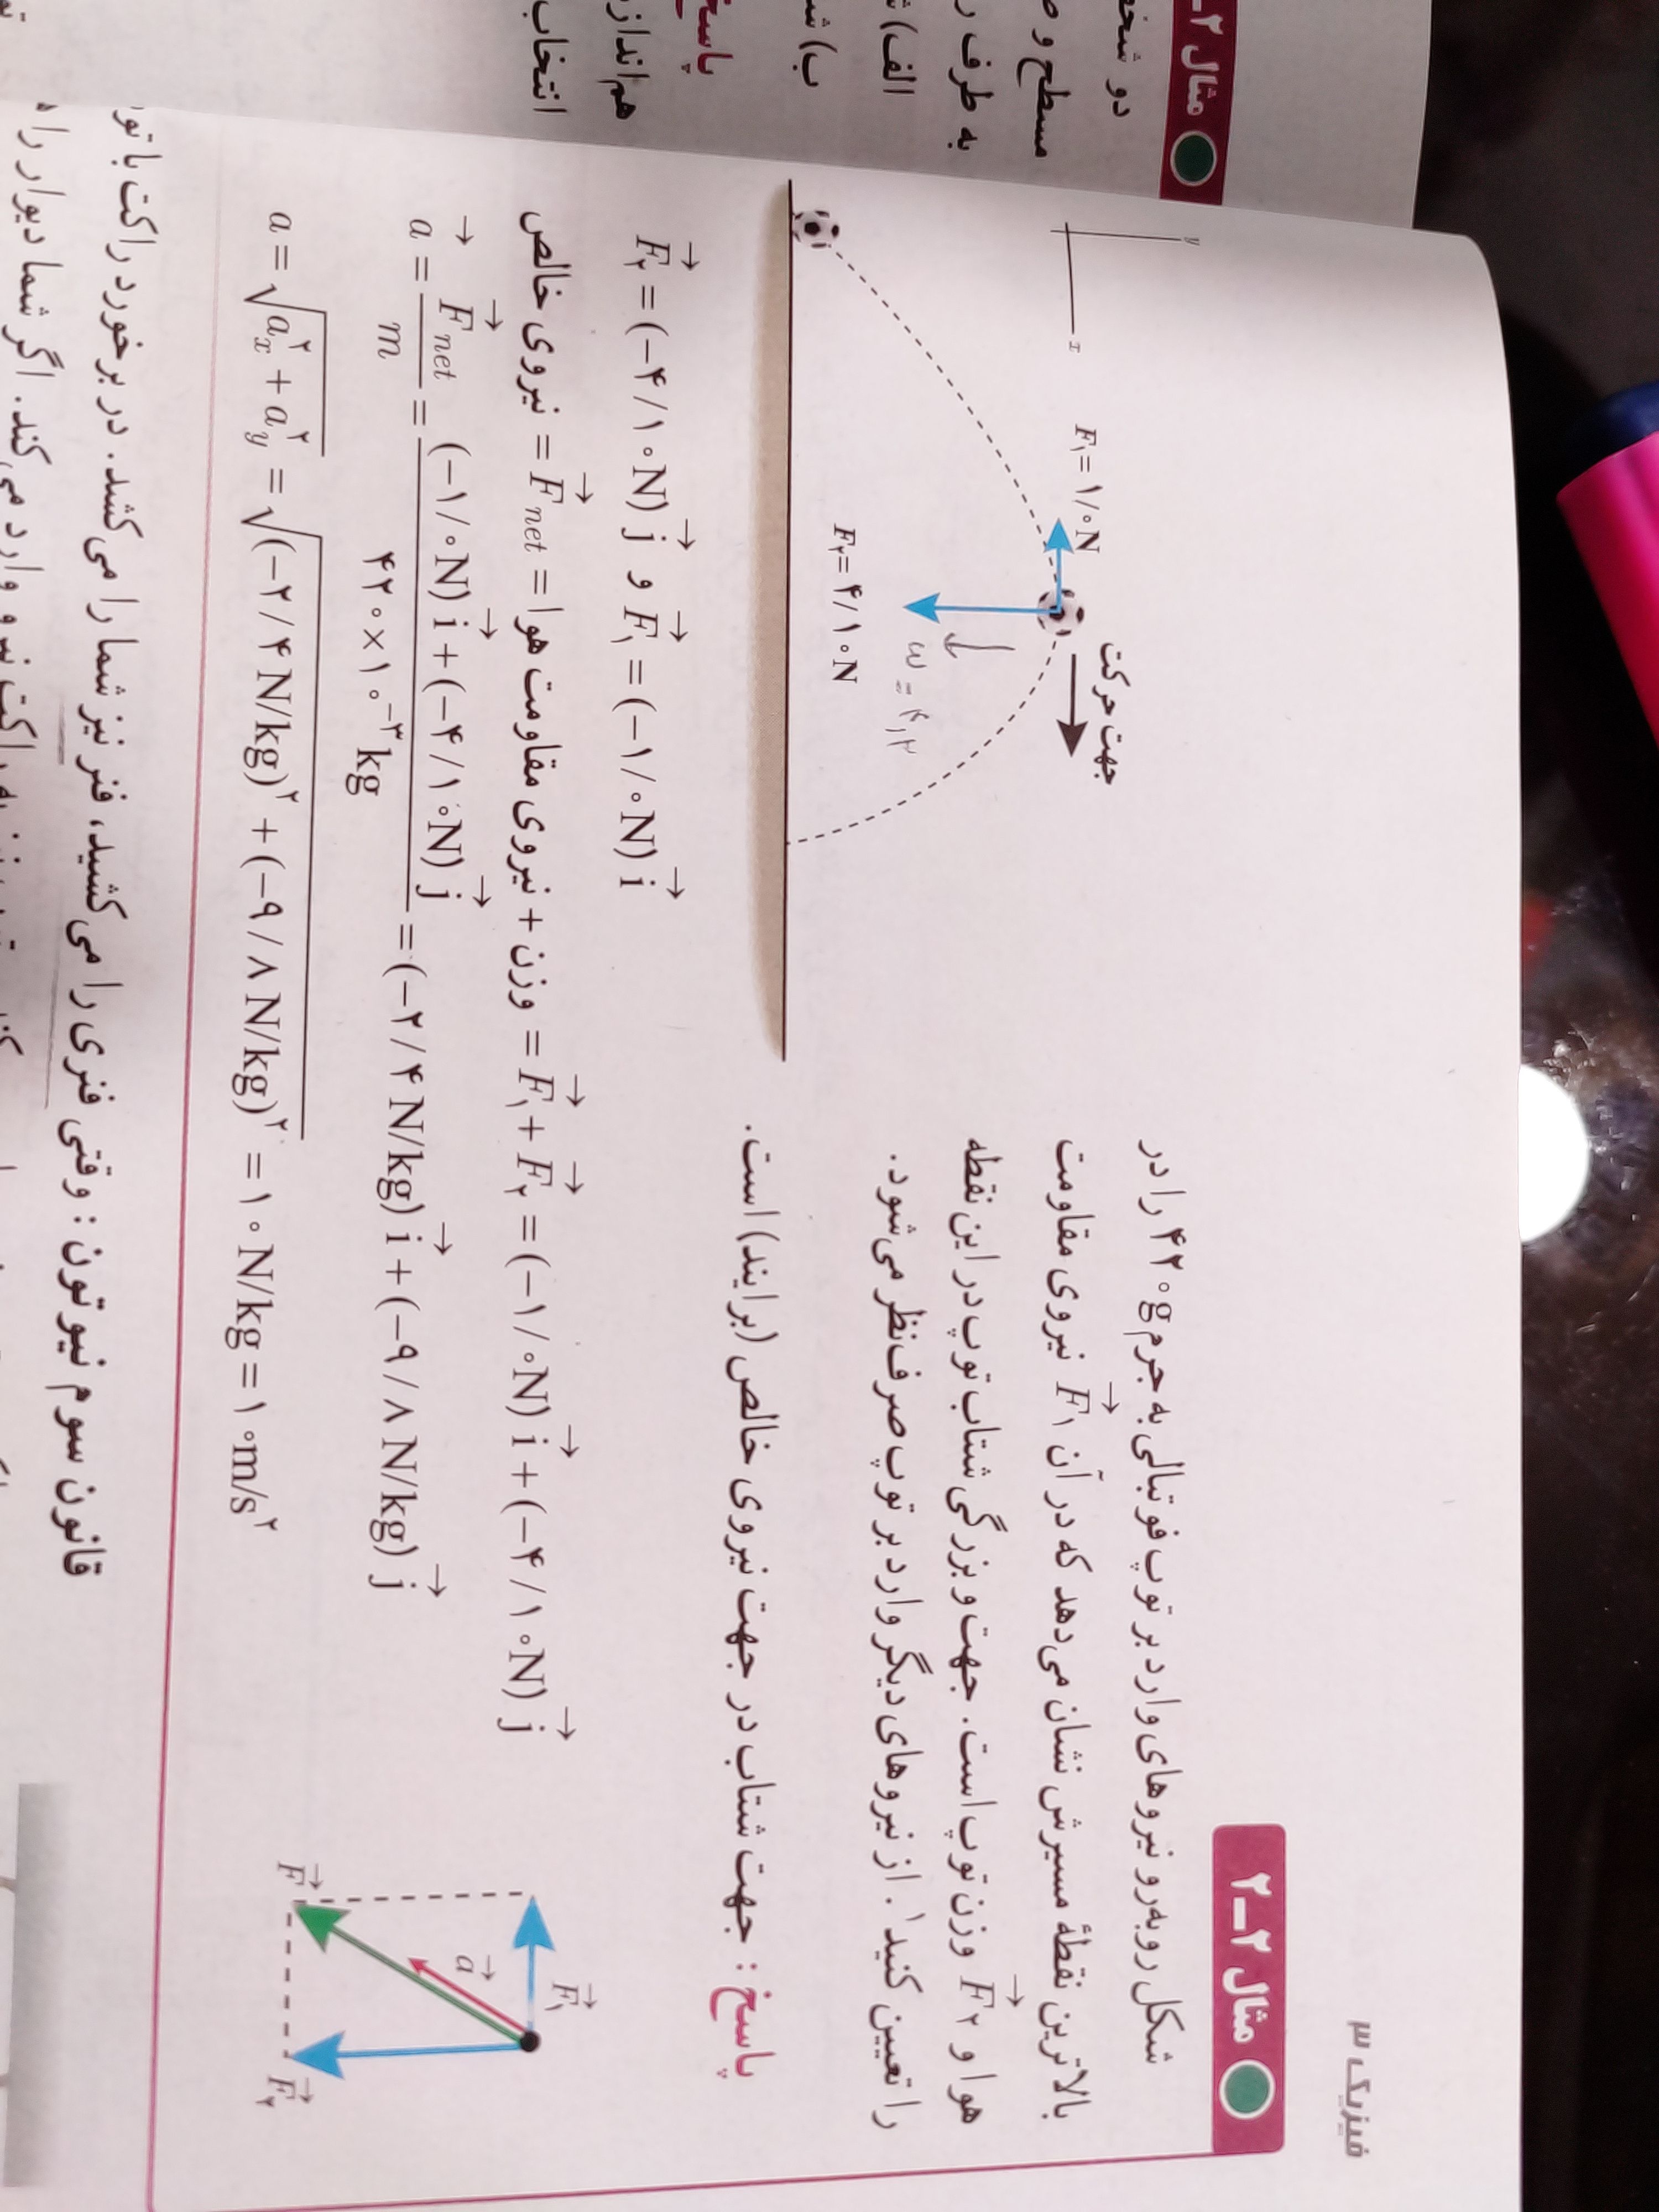 فیزیک ۳
مثال ۲ـ۲
شکل روبه‌رو نیروهای وارد بر توپ فوتبالی به جرم ۴۲۰g را در
بالاترین نقطهٔ مسیرش نشان می‌دهد که در آن F⃗۱ نیروی مقاومت
هوا و F⃗۲ وزن توپ است. جهت و بزرگی شتاب توپ در این نقطه
را تعیین کنید۱. از نیروهای دیگر وارد بر توپ صرف‌نظر می‌شود.
y
x
جهت حرکت
F۱= ۱/۰N
F۲= ۴/۱۰N
پاسخ: جهت شتاب در جهت نیروی خالص (برایند) است.
F⃗۲ = (−۴/۱۰N) j⃗ و F⃗۱ = (−۱/۰N) i⃗
نیروی خالص = F⃗net = وزن + نیروی مقاومت هوا = F⃗۱ + F⃗۲ = (−۱/۰N) i⃗ + (−۴/۱۰N) j⃗
a⃗ = F⃗net / m = (−۱/۰N) i⃗ + (−۴/۱۰N) j⃗ / ۴۲۰×۱۰⁻³ kg = (−۲/۴ N/kg) i⃗ + (−۹/۸ N/kg) j⃗
a = √(ax² + ay²) = √((−۲/۴ N/kg)² + (−۹/۸ N/kg)²) = ۱۰ N/kg = ۱۰m/s²
F⃗۱
a⃗
F⃗
F⃗۲
قانون سوم نیوتون: وقتی فنری را می‌کشید، فنر نیز شما را می‌کشد. در برخورد راکت با
مثال ۲ـ
دو
مسطح و
به طرف
الف)
ب)
پاسخ
انتخاب